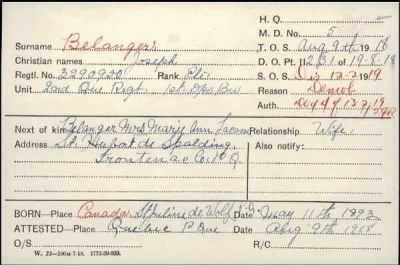 H. Q.
M. D. No. 5
Surname Belanger
T. O. S. Aug 9th 1918
Christian names Joseph
D. O. Pt. II 231 of 19-8-18
Regtl. No. 3290920 Rank Pte.
S. O. S. Dis 12-7-1919
Unit 2nd Que Regt. 1st Dpo Bn
Reason Demob
Auth.
Next of kin Belanger Mrs. Mary Ann Relationship Wife.
Address St. Hubert de Spalding, Also notify:
Frontenac Co. P.Q.
BORN—Place Canada St Juline de Wolf Date May 11th 1892
ATTESTED—Place Quebec P Que Date Aug 9th 1918
O/S R/C